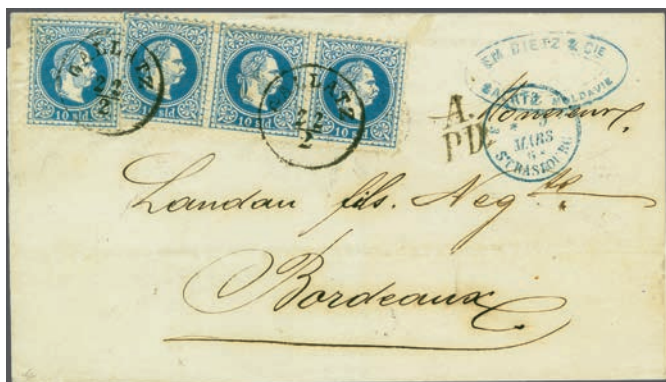 10 sld 10 sld 10 sld 10 sld
GALLATZ
22
2
GALLATZ
22
2
EM DIETZ & CIE
GALATZ MOLDAVIE
A.
PD.
MARS
STRASBOURG
Monsieur,
Landau fils. Neg.ts
Bordeaux